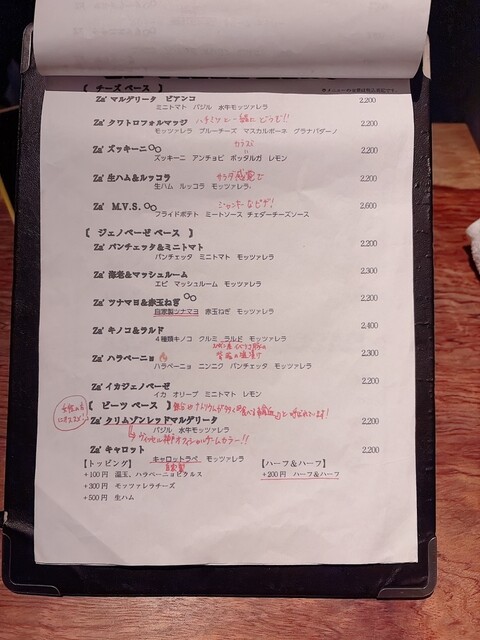 【 チーズ ベース 】
Za' マルゲリータ ビアンコ 2,200
ミニトマト バジル 水牛モッツァレラ
Za' クワトロフォルマッジ ハチミツと一緒にどうぞ!! 2,200
モッツァレラ ブルーチーズ マスカルポーネ グラナパダーノ
カラスミ
Za' ズッキーニ 2,200
ズッキーニ アンチョビ ボッタルガ レモン
Za' 生ハム&ルッコラ サラダ感覚で 2,200
生ハム ルッコラ モッツァレラ
Za' M.V.S. ジャンキーなピザ! 2,600
フライドポテト ミートソース チェダーチーズソース
【 ジェノベーゼ ベース 】
Za' パンチェッタ&ミニトマト 2,200
パンチェッタ ミニトマト モッツァレラ
Za' 海老&マッシュルーム 2,300
エビ マッシュルーム モッツァレラ
Za' ツナマヨ&赤玉ねぎ 2,200
自家製ツナマヨ 赤玉ねぎ モッツァレラ
Za' キノコ&ラルド 2,400
4種類キノコ クルミ ラルド モッツァレラ
Za' ハラペーニョ 2,300
ハラペーニョ ニンニク パンチェッタ モッツァレラ
Za' イカジェノベーゼ 2,200
イカ オリーブ ミニトマト レモン
【 ビーツ ベース 】
Za' クリムゾンレッドマルゲリータ 2,200
バジル 水牛モッツァレラ
ヴィッセル神戸オフィシャルチームカラー!!
Za' キャロット 2,200
キャロットラペ モッツァレラ
自家製
【トッピング】
+100円 温玉、ハラペーニョピクルス
+300円 モッツァレラチーズ
+500円 生ハム
【ハーフ&ハーフ】
+200円 ハーフ&ハーフ